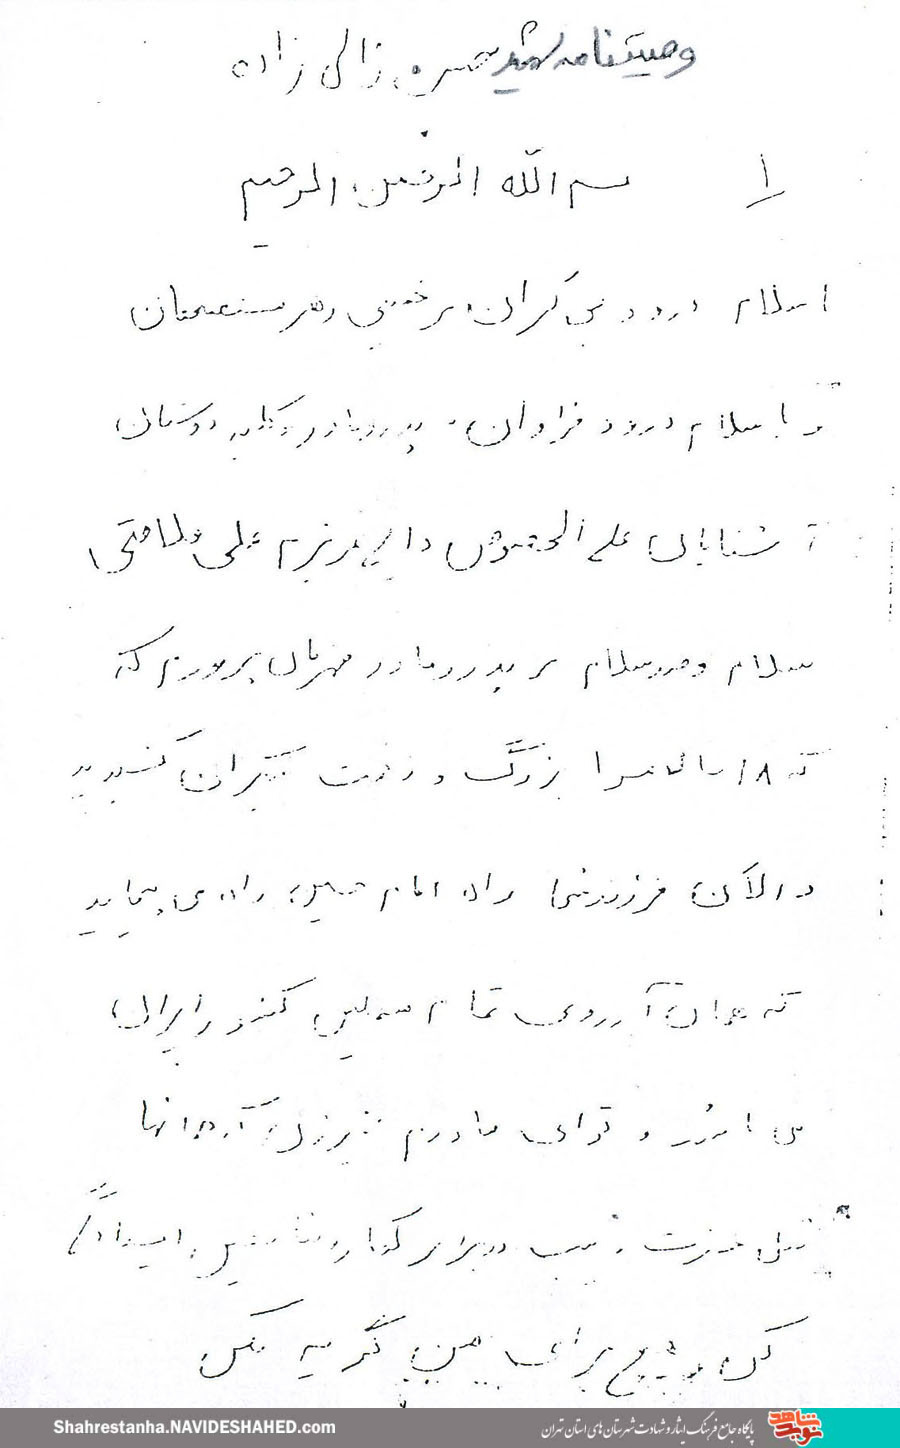 وصیتنامه شهید حسن زالی زاده
بسم الله الرحمن الرحیم
با سلام درود بی کران بر خمینی رهبر مستضعفان
و با سلام درود فراوان به پدر و مادر و کلیه دوستان
آشنایان علی الخصوص دایی عزیزم علی
سلام و درود سلام بر پدر و مادر مهربان پرورم که
که ۱۸ سال مرا بزرگ و زحمت بیکران کشیدید
و الآن فرزند شما راه امام حسین راه می پیماید
که همان آرزوی تمام مسلمین کشور ایران
می باشد و تو ای مادرم عزیزم
مثل حضرت زینب در برابر کفار و منافقین ایستادگی
کن و هیچ برای من گریه مکن
Shahrestanha.NAVIDESHAHED.com
پایگاه جامع فرهنگ ایثار و شهادت شهرستان های استان تهران
نوید شاهد